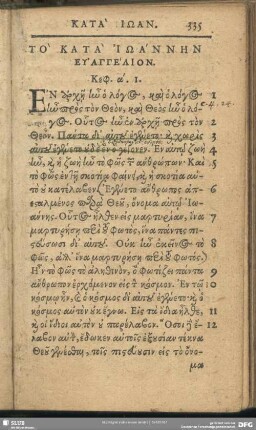 ΚΑΤΑ' ΙΩΑΝ. 335
ΤΟ' ΚΑΤΑ' ἸΩΑ'ΝΝΗΝ
ΕΥ'ΑΓΓΕ'ΛΙΟΝ.
Κεφ. α'. 1.
ἘΝ ἀρχῇ ἦν ὁ λόγος, καὶ ὁ λόγος 1
ἦν πρὸς τὸν Θεὸν, καὶ Θεὸς ἦν ὁ λό-
γος. Οὗτος ἦν ἐν ἀρχῇ πρὸς τὸν 2
Θεόν. Πάντα δι' αὐτοῦ ἐγένετο· καὶ χωρὶς 3
αὐτοῦ ἐγένετο οὐδὲ ἓν ὃ γέγονεν. Ἐν αὐτῷ ζωὴ 4
ἦν, καὶ ἡ ζωὴ ἦν τὸ φῶς τῶν ἀνθρώπων· Καὶ 5
τὸ φῶς ἐν τῇ σκοτίᾳ φαίνει, καὶ ἡ σκοτία αὐ-
τὸ οὐ κατέλαβεν. Ἐγένετο ἄνθρωπος ἀπε- 6
σταλμένος παρὰ Θεοῦ, ὄνομα αὐτῷ Ἰω-
άννης. Οὗτος ἦλθεν εἰς μαρτυρίαν, ἵνα 7
μαρτυρήσῃ περὶ τοῦ φωτὸς, ἵνα πάντες πι-
στεύσωσι δι' αὐτοῦ. Οὐκ ἦν ἐκεῖνος τὸ 8
φῶς, ἀλλ' ἵνα μαρτυρήσῃ περὶ τοῦ φωτός.
Ἦν τὸ φῶς τὸ ἀληθινὸν, ὃ φωτίζει πάντα 9
ἄνθρωπον ἐρχόμενον εἰς τὸν κόσμον. Ἐν τῷ 10
κόσμῳ ἦν, καὶ ὁ κόσμος δι' αὐτοῦ ἐγένετο· καὶ ὁ
κόσμος αὐτὸν οὐκ ἔγνω. Εἰς τὰ ἴδια ἦλθε, 11
καὶ οἱ ἴδιοι αὐτὸν οὐ παρέλαβον. Ὅσοι δὲ ἔ- 12
λαβον αὐτὸν, ἔδωκεν αὐτοῖς ἐξουσίαν τέκνα
Θεοῦ γενέσθαι, τοῖς πιστεύουσιν εἰς τὸ ὄνο-
μα
SLUB
DFG